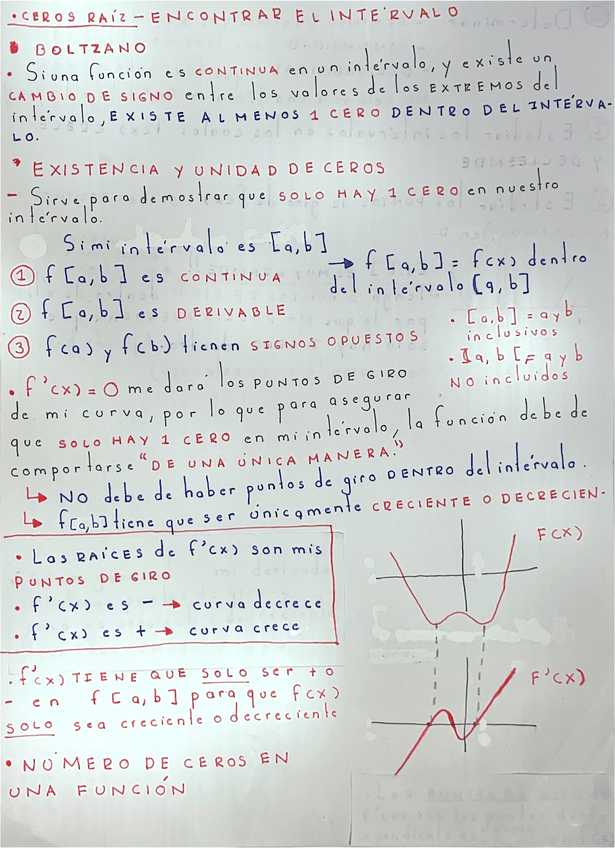 • CEROS RAÍZ - ENCONTRAR EL INTÉRVALO
• BOLTZANO
• Si una función es CONTINUA en un intérvalo, y existe un
CAMBIO DE SIGNO entre los valores de los EXTREMOS del
intérvalo, EXISTE AL MENOS 1 CERO DENTRO DEL INTÉRVA-
LO.
• EXISTENCIA Y UNIDAD DE CEROS
- Sirve para demostrar que SOLO HAY 1 CERO en nuestro
intérvalo.
Si mi intérvalo es [a,b]
→ f [a,b] = f(x) dentro
del intérvalo [a,b]
① f [a,b] es CONTINUA
② f [a,b] es DERIVABLE
③ f(a) y f(b) tienen SIGNOS OPUESTOS
• [a,b] = a y b
inclusivos
• ]a,b[ = a y b
NO incluidos
• f'(x) = 0 me dará los PUNTOS DE GIRO
de mi curva, por lo que para asegurar
que SOLO HAY 1 CERO en mi intérvalo, la función debe de
comportarse "DE UNA ÚNICA MANERA."
↳ NO debe de haber puntos de giro DENTRO del intérvalo.
↳ f[a,b] tiene que ser únicamente CRECIENTE O DECRECIEN-
• Las RAÍCES de f'(x) son mis
PUNTOS DE GIRO
• f'(x) es - → curva decrece
• f'(x) es + → curva crece
F(X)
F'(X)
• f'(x) TIENE QUE SOLO ser + o
- en f [a,b] para que f(x)
SOLO sea creciente o decreciente
• NÚMERO DE CEROS EN
UNA FUNCIÓN